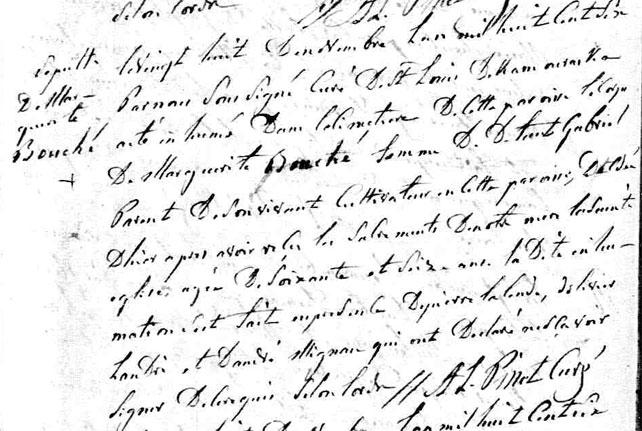 selon lordre //
Sepultre
De Mar-
gueritte
Bouché
+
le vingt huit De novembre Lan mil huit Cent Six
Par nous Sous Signé Curé De St Louis De Kamouraska
a eté in humé Dans le Cimetiere De Cette paroisse le Corps
De Marguerite Bouché femme De D. funt Gabriel
Parent De Son vivant Cultivateur en Cette paroisse,
Dhier apres avoir reçu les Sacrements De notre mere la Sainte
eglise, agée De Soixante et Seize ans la Dite in hu-
mation S'est fait en presence De pierre la lande, d'olivier
Landri et D'andré Mignau qui ont Declaré ne Sçavoir
Signer De Ce requis Selon lordre // A L. Pinet Curé
Lan mil huit Cent Six